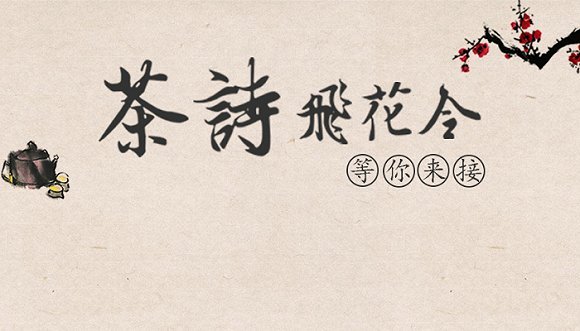 茶詩飛花令
等你来接